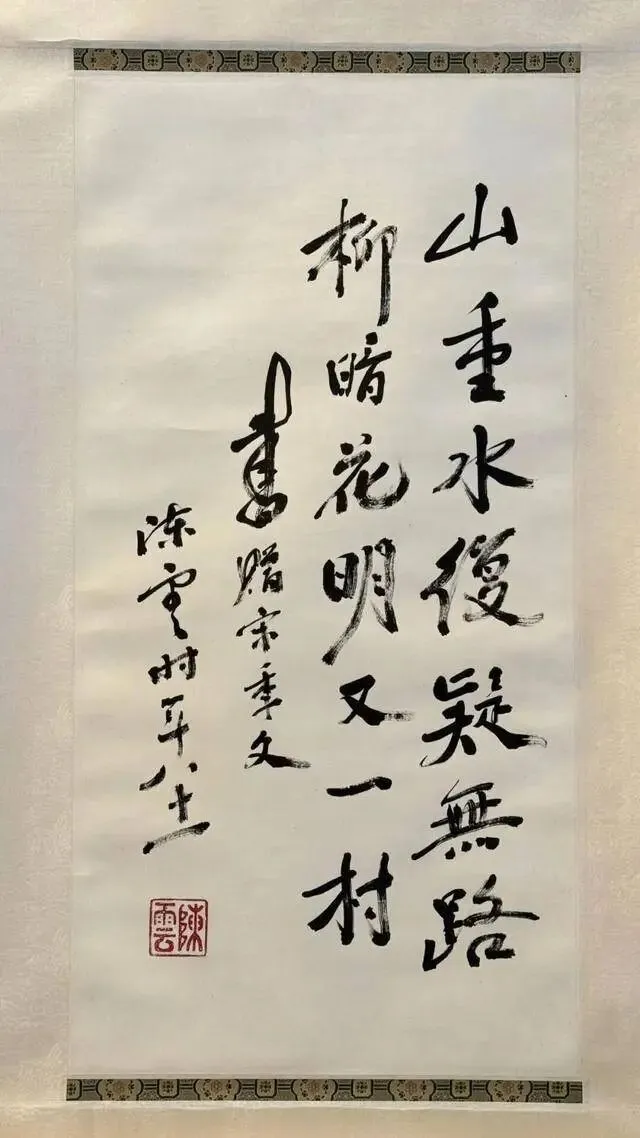 山重水復疑無路
柳暗花明又一村
書贈宋季文
陈雲时年八十一
陳雲